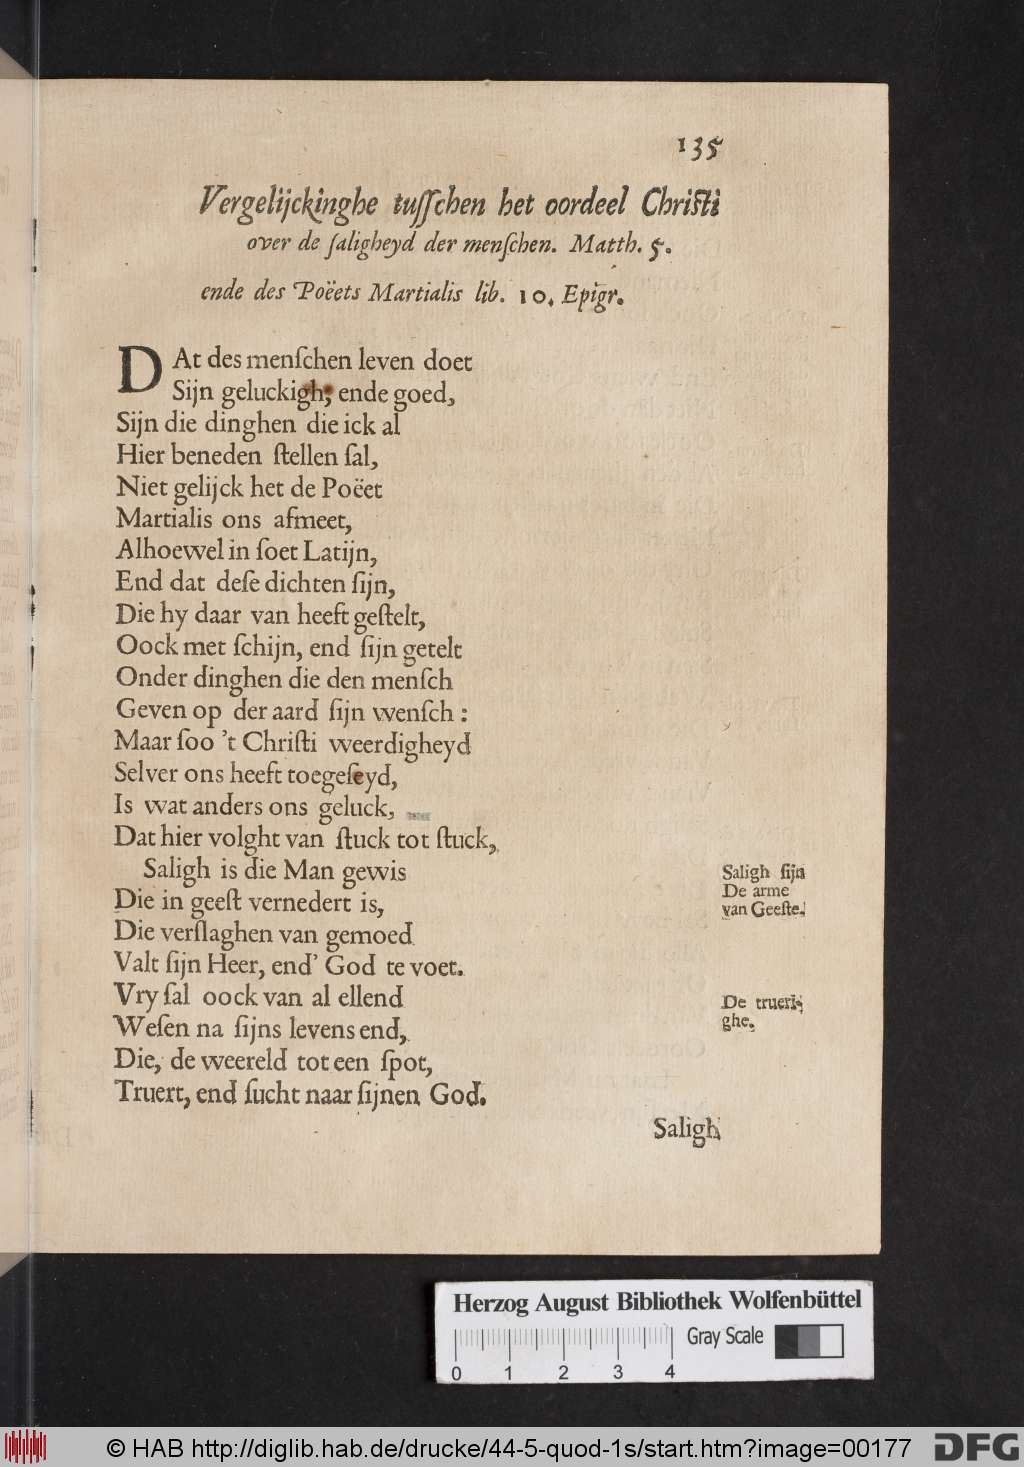 135
Vergelijckinghe tuſſchen het oordeel Chriſti
over de ſaligheyd der menſchen. Matth. 5.
ende des Poëets Martialis lib. 10. Epigr.
DAt des menſchen leven doet
Sijn geluckigh, ende goed,
Sijn die dinghen die ick al
Hier beneden ſtellen ſal,
Niet gelijck het de Poëet
Martialis ons afmeet,
Alhoewel in ſoet Latijn,
End dat deſe dichten ſijn,
Die hy daar van heeft geſtelt,
Oock met ſchijn, end ſijn getelt
Onder dinghen die den menſch
Geven op der aard ſijn wenſch :
Maar ſoo 't Chriſti weerdigheyd
Selver ons heeft toegeſeyd,
Is wat anders ons geluck,
Dat hier volght van ſtuck tot ſtuck,
Saligh is die Man gewis
Die in geeſt vernedert is,
Die verſlaghen van gemoed
Valt ſijn Heer, end' God te voet.
Vry ſal oock van al ellend
Weſen na ſijns levens end,
Die, de weereld tot een ſpot,
Truert, end ſucht naar ſijnen God.
Saligh ſijn
De arme
van Geeſte.
De trueri-
ghe.
Saligh
Herzog August Bibliothek Wolfenbüttel
Gray Scale
0 1 2 3 4
© HAB http://diglib.hab.de/drucke/44-5-quod-1s/start.htm?image=00177
DFG